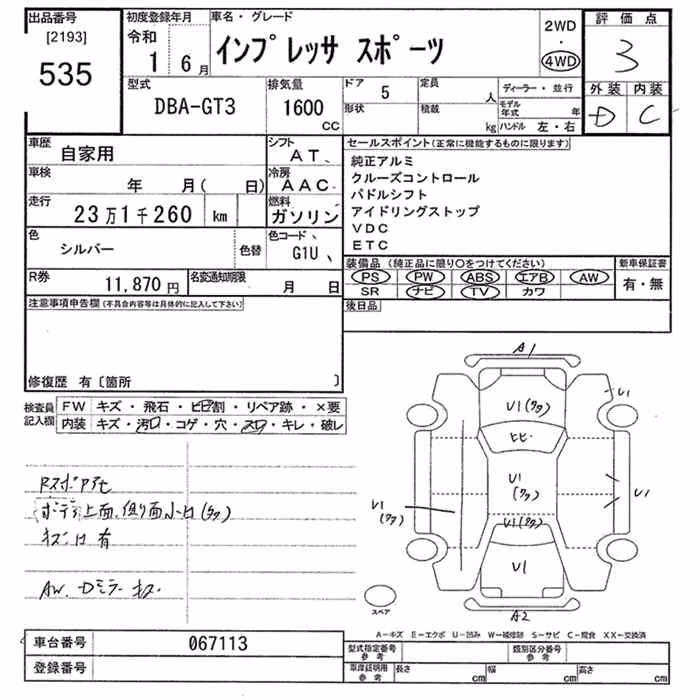 出品番号 初度登録年月 車名・グレード 評価点
[2193] 令和 2WD
535 1 6月 インプレッサ スポーツ ・ 3
4WD
型式 排気量 ドア 5 定員 人 ディーラー・並行 外装 内装
DBA-GT3 1600 cc 形状 積載 kg モデル年式 年 D C
ハンドル 左・右
車歴 自家用 シフト AT、 セールスポイント(正常に機能するものに限ります)
車検 年 月( 日) 冷房 AAC 純正アルミ
走行 23万1千260 km 燃料 ガソリン クルーズコントロール
パドルシフト
アイドリングストップ
VDC
ETC
色 シルバー 色替 色コード、 G1U、
装備品(純正品に限り○をつけてください) 新車保証書
PS PW ABS エアB AW 有・無
SR ナビ TV カワ
後日品
R券 11,870円 名変通知期限 月 日
注意事項申告欄(不具合内容等は具体的に記入して下さい)
修復歴 有〔箇所 〕
検査員記入欄 FW キズ・飛石・ヒビ割・リペア跡・×要
内装 キズ・汚レ・コゲ・穴・スレ・キレ・破レ
Rスポアセ
ボデー上面、側り面小凹(タタ)
キズ凹有
AW、Dミラーキズ
A1
U1
U1(タタ)
ヒビ
U1
(タタ)
U1
(タタ)
U1
U1(タタ)
U1
A2
スペア
A－キズ E－エクボ U－凹み W－補修跡 S－サビ C－腐食 XX－交換済
車台番号 067113
登録番号
型式指定番号 参考 類別区分番号 参考
車庫証明用 参考 長さ cm 幅 cm 高さ cm